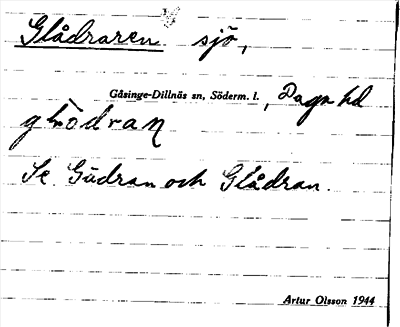 Glådraren sjö,
Gåsinge-Dillnäs sn, Söderm. l., Daga hd
glòdran
Se Gådran och Glådran.
Artur Olsson 1944